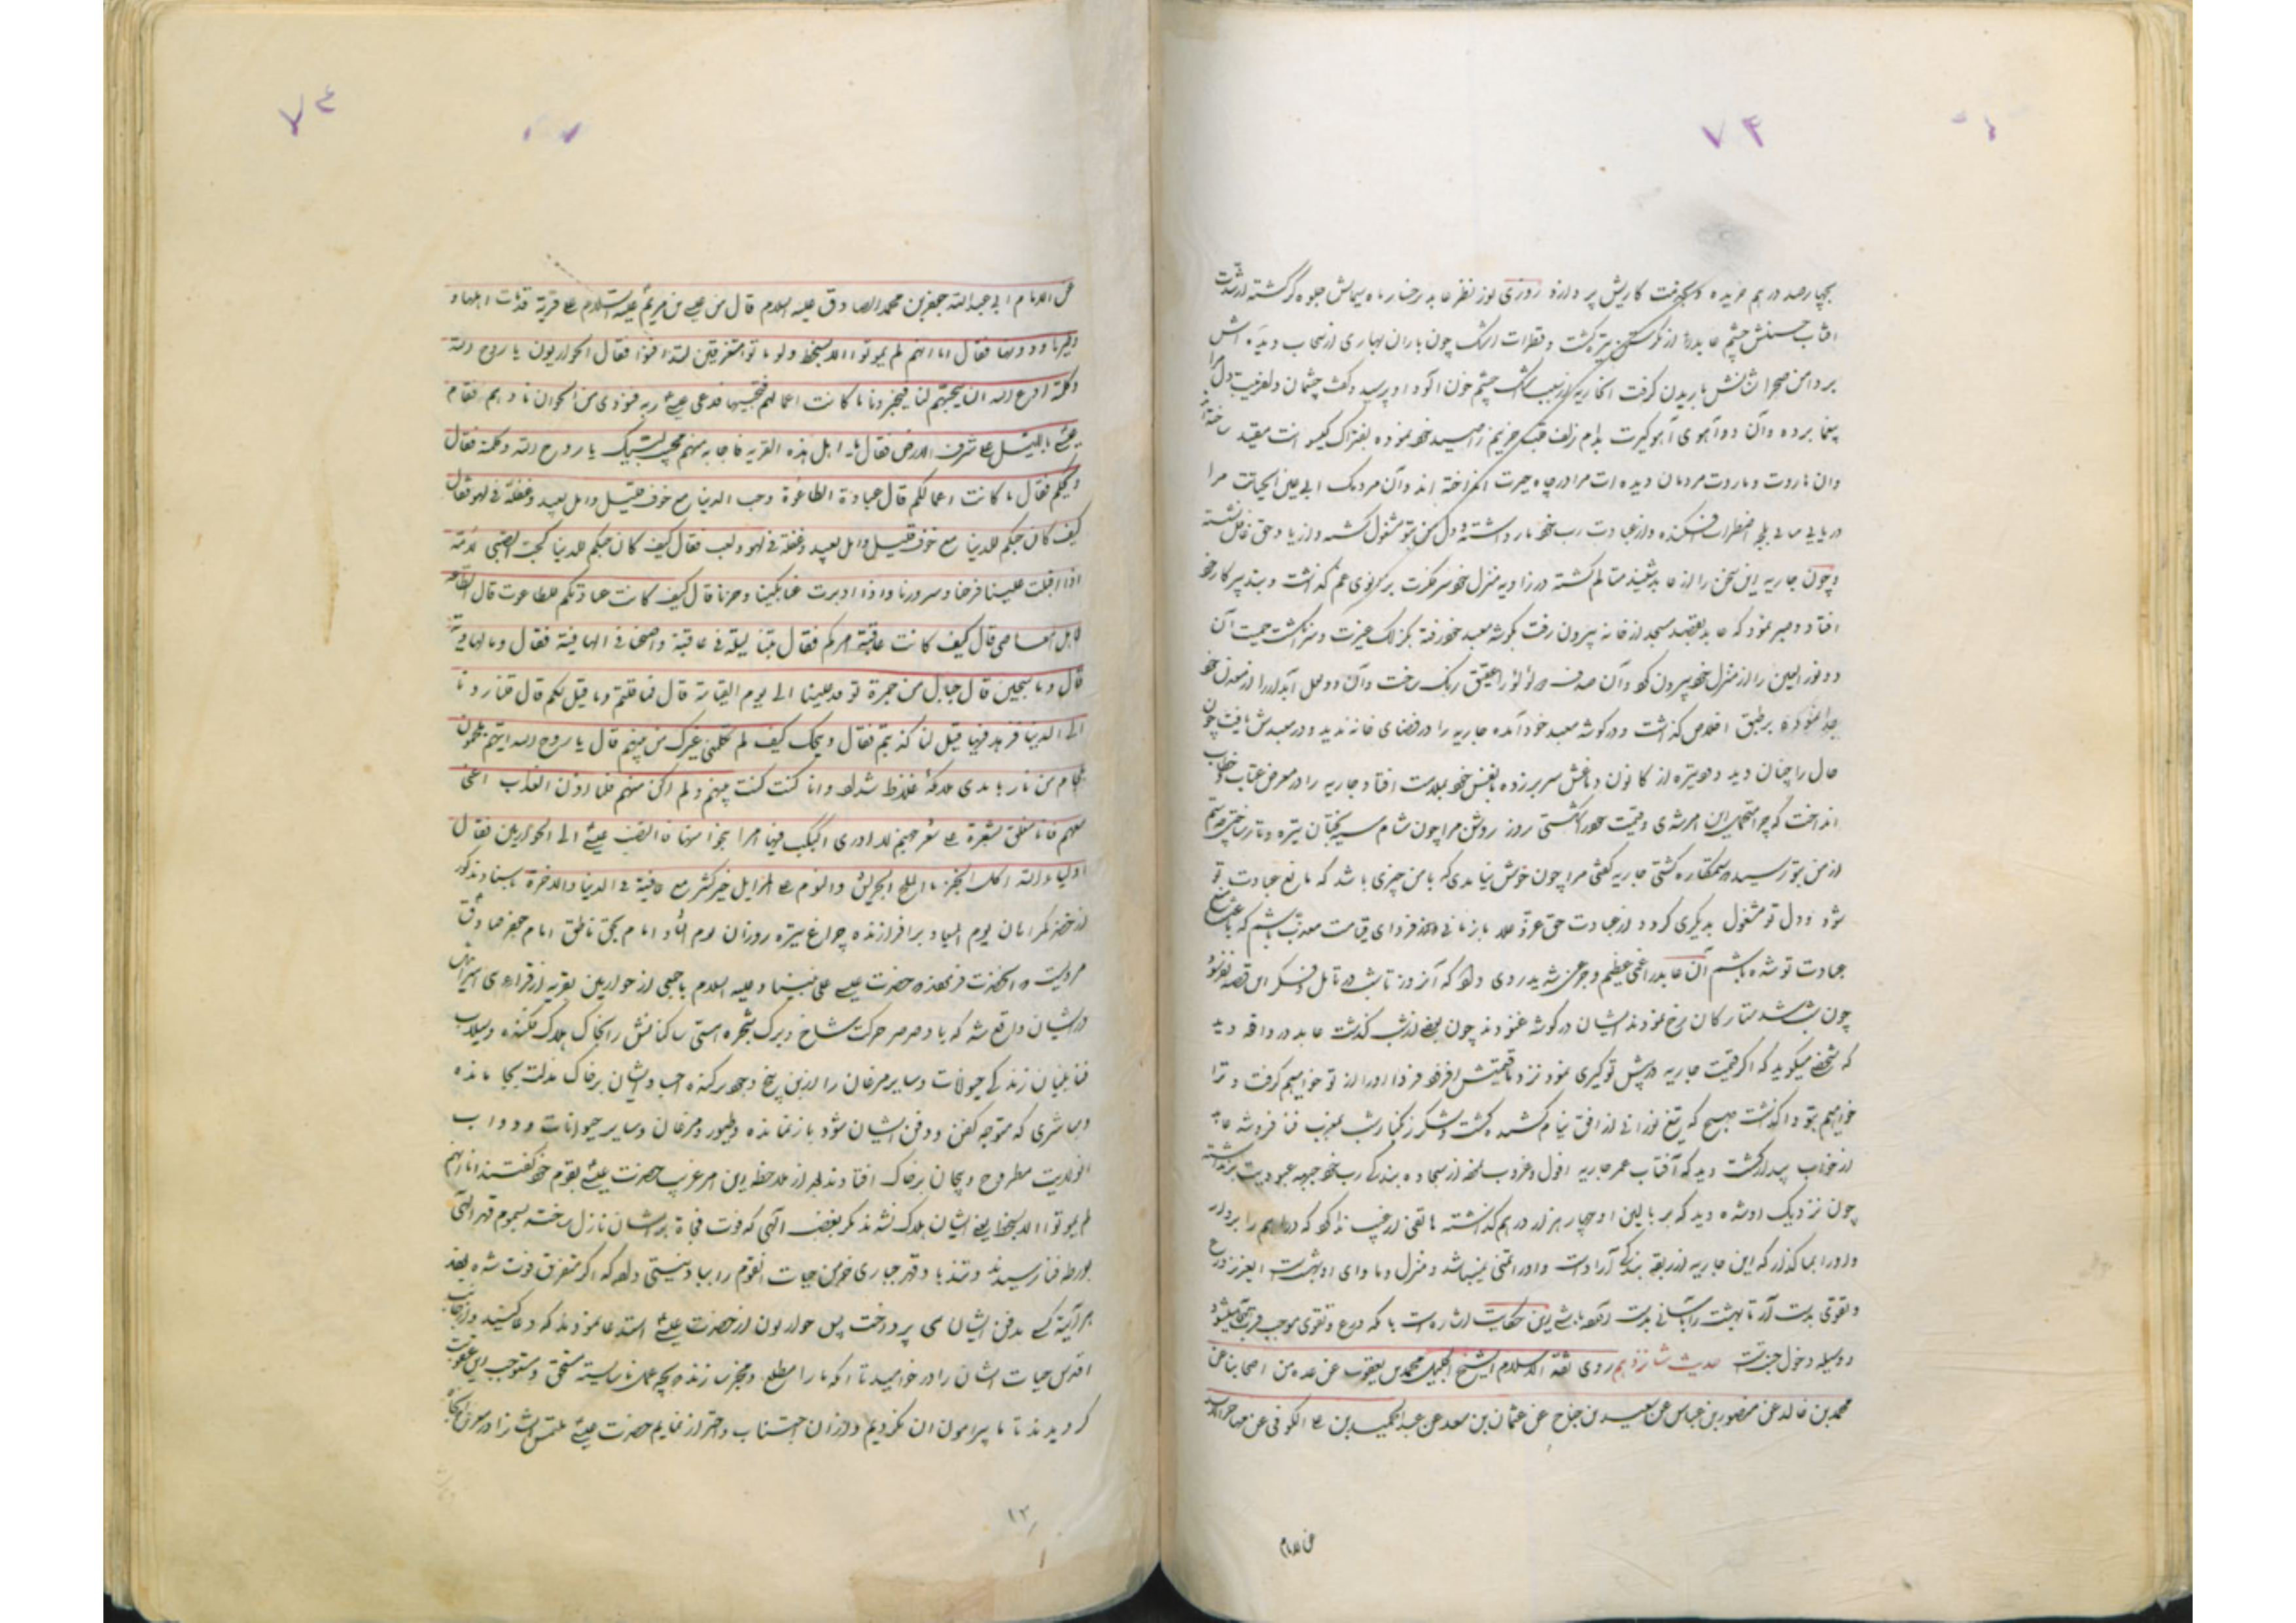 ۷۴
بچهارصد درهم خریده و گفت کاریش پردازد روزی نور نظر عابد بر رخسار ماه سیمایش جلوه گر گشته از شدت
افتاب حسنش چشم عابد را از نگریستن تیره گشت و قطرات اشک چون باران بهاری از سحاب دیده اش
بر دامن صحرا باریدن گرفت جاریه از سبب اشک چشم خون آلود او پرسید گفت چشمان دلفریبت دل مرا
بیغما برده و آن دو آهوی آهوگیرت بدام زلف خود نموده بفتراک گیسوانت مقید ساخته اند
وان هاروت و ماروت مردمان دیده ات مرا در چاه حیرت انداخته اند و آن مردمک مرا
در اضطراب افکنده و از عبادت رب خود بازداشته و دل من بتو مشغول گشته و از یاد حق غافل گشته
و چون جاریه این سخن را از عابد شنید متالم گشته در زاویه منزل خود سر فکرت بر زانوی غم گذاشت و
افتاد و صبر نمود که عابد بقصد مسجد از خانه بیرون رفت بگوشه معبد خود رفته بگزلک غیرت و سرانگشت حمیت آن
دو نور العین را از منزل خود بیرون کرد و آن صدف لؤلؤ را عقیق رنگ ساخت و آن دو لعل آبدار را از معدن خود
جدا نموده بر طبق اخلاص گذاشت و در گوشه معبد خود آمده جاریه را در فضای خانه ندید و در معبدش یافت چون
حال را چنان دید دود تیره از کانون دماغش سر بر زده بنفس خود بملامت افتاد و جاریه را در معرض عتاب و خطاب
انداخت که چرا متحمل این امر شدی و روز روشن مرا چون شام سیه بختان تیره و تار ساختی چه ستم
از من بتو رسید و ستمکاره گشتی جاریه گفتی مرا چون خوش نیامدی که با من چیزی باشد که مانع عبادت تو
شود و دل تو مشغول بدیگری گردد و از عبادت حق عز و علا باز مانی و فردای قیامت معذب باشم که باعث منع
عبادت تو شده باشم آن عابد را غمی عظیم و جزعی شدید روی داد که آن روز تا شب در تامل و فکر این قصه
چون شب شد ستارگان رخ نمودند ایشان در گوشه غنودند چون بعضی از شب گذشت عابد در واقعه دید
که شخصی میگوید که اگر قیمت جاریه در پیش تو کمی نمود نزد ما قیمتش افزود فردا او را از تو خواهیم گرفت و ترا
خواهیم بتو واگذاشت صبح که تیغ نورانی از افق نیام کشیده گشت و لشکر زنگبار شب بمغرب فنا فرو شد عابد
از خواب بیدار گشت دید که آفتاب عمر جاریه افول و غروب نموده از سجاده بندگی رب خود جبهه عبودیت برنداشته
چون نزدیک او شد دید که بر بالین او چهار هزار درهم گذاشته هاتفی از غیب ندا کرد که دراهم را بردار
و او را بما گذار که این جاریه از ربقه بندگی آزاد است و او را ثمنی نمیباشد و منزل و ماوای او بهشت است ای عزیز ورع
و تقوی بدست آر تا بهشت را بآسانی بدست آورده باشی این حکایت اشاره است با که ورع و تقوی موجب قرب میشود
و وسیله دخول جنتست حدیث شانزدهم روی ثقة الاسلام الشیخ الجلیل محمد بن یعقوب عن عده من اصحابنا عن
محمد بن خالد عن منصور بن عباس عن سعید بن جناح عن عثمان بن سعد عن عبد الحمید بن علی الکوفی عن مهاجر الاسدی
عن الامام
۷۴
عن الامام ابی عبدالله جعفر بن محمد الصادق علیه السلام قال مر عیسی بن مریم علیه السلام علی قریة قد مات اهلها و
طیرها و دوابها فقال اما انهم لم یموتوا الا بسخط ولو ماتوا متفرقین لتدافنوا فقال الحواریون یا روح الله
و کلمته ادع الله ان یحییهم لنا فیخبرونا ما کانت اعمالهم فنجتنبها فدعی عیسی ربه فنودی من الجو ان نادهم فقام
عیسی باللیل علی شرف الارض فقال یا اهل هذه القریه فاجابه منهم مجیب لبیک یا روح الله و کلمته فقال
ویحکم فقال ما کانت اعمالکم قال عبادة الطاغوت و حب الدنیا مع خوف قلیل و امل بعید و غفلة فی لهو فقال
کیف کان حبکم للدنیا مع خوف قلیل و امل بعید و غفلة فی لهو و لعب فقال کیف کان حبکم للدنیا کحب الصبی لامه
اذا اقبلت علینا فرحنا و سررنا و اذا ادبرت عنا بکینا و حزنا قال کیف کانت عبادتکم للطاغوت قال الطاعه
لاهل المعاصی قال کیف کانت عاقبة امرکم فقال بتنا لیلة فی عافیة و اصبحنا فی الهاویة فقال و ما الهاویة
قال و ما سجین قال جبال من جمرة توقد علینا الی یوم القیامة قال فما قلتم و ما قیل لکم قال قلنا ردنا
الی الدنیا فنزهد فیها قیل لنا کذبتم فقال ویحک کیف لم یکلمنی غیرک من بینهم قال یا روح الله انهم ملجمون
بلجام من نار بایدی ملائکة غلاظ شداد و انا کنت فیهم و لم اکن منهم فلما نزل العذاب اعمنی
معهم فانا معلق بشعرة علی شفیر جهنم لا ادری اکبکب فیها ام انجو منها فالتفت عیسی الی الحواریین فقال
اولیاء الله اکل الخبز بالملح الجریش و النوم علی المزابل خیر کثیر مع عافیة فی الدنیا و الاخرة
از خضر گمراهان یوم المیعاد بر افرازنده چراغ تیره روزان امام بحق ناطق امام جعفر صادق
مرویست که آنحضرت فرمودند حضرت عیسی علی نبینا و علیه السلام با جمعی از حواریین بقریه از قراء
درایشان واقع شد که باد صرصر حرکت شاخ و برگ شجره هستی ساکنانش را بخاک هلاک فکنده و سیلاب
فنا بنیان زندگی حیوانات و سایر مرغان را از بن و بیخ برکنده اجساد ایشان بر خاک مذلت بجا مانده
و مباشری که متوجه کفن و دفن ایشان شود باز نمانده و طیور و مرغان و سایر حیوانات و دواب
انولایت مطروح و بیجان بر خاک افتاده بود از ملاحظه این امر غریب حضرت عیسی بقوم خود گفتند اما انهم
لم یموتوا الا بسخط یعنی ایشان هلاک نشدند مگر بغضب الهی که فوت فجاة بر ایشان نازل ساخته بسموم قهر الهی
بورطه فنا رسیدند و تندباد قهر جباری خرمن حیات انقوم را بباد نیستی داده که اگر متفرق فوت شده بودند
هر آینه کسی بدفن ایشان می پرداخت پس حواریون از حضرت عیسی استدعا نمودند که دعا کنید و از جانب
اقدس حیات ایشان را در خواهید تا آنکه ما را مطلع و مخبر سازند که بچه عمل ناشایسته مستحق و مستوجب این عقوبت
گردیدند تا ما پیرامون آن نگردیم و از آن اجتناب و احتراز نمایم حضرت عیسی ملتمس ایشان را در معرض
۱۲